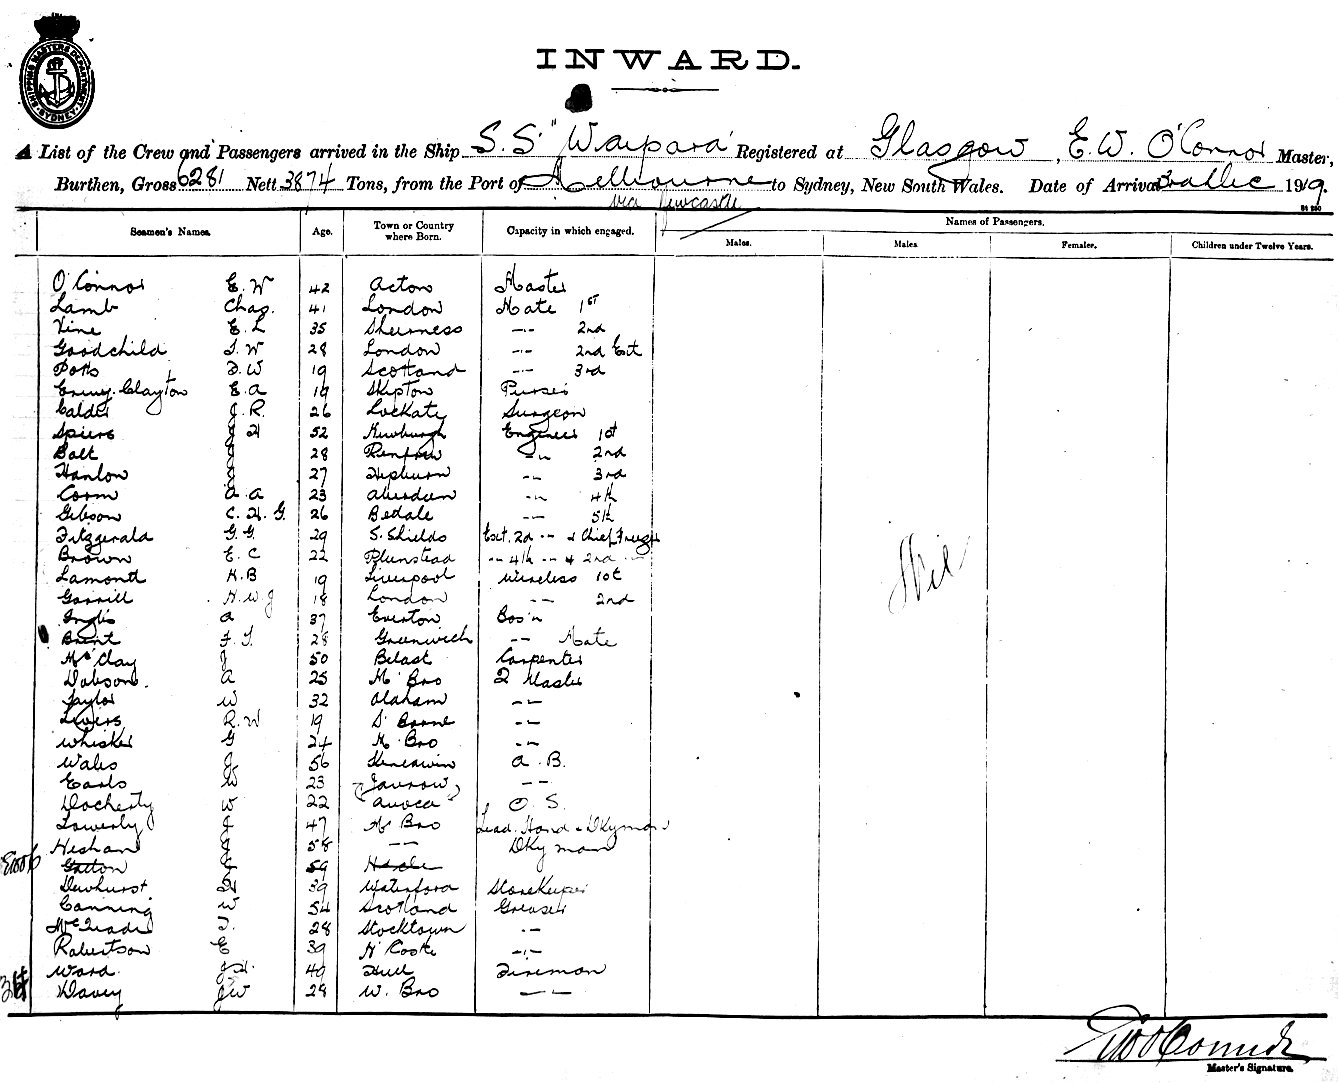 SHIPPING MASTERS DEPARTMENT SYDNEY
INWARD.
A List of the Crew and Passengers arrived in the Ship S.S "Waipara" Registered at Glasgow, E.W. O'Connor Master,
Burthen, Gross 6281 Nett 3874 Tons, from the Port of Melbourne to Sydney, New South Wales. Date of Arrival Dec 1919.
via Newcastle
Seamen's Names. Age. Town or Country where Born. Capacity in which engaged. Names of Passengers.
Males. Males Females. Children under Twelve Years.
O'Connor E.W 42 Acton Master
Lamb Chas. 41 London Mate 1st
Vine E.L 35 Sheerness -"- 2nd
Goodchild T.W 28 London -"- 2nd Ext
Potts D.W 19 Scotland -"- 3rd
Clayton E.A 19 Skipton Purser
Calder J.R. 26 Surgeon
Spiers J H 52 Newburgh Engineer 1st
Balt J 28 Renfrew -"- 2nd
Hanlon J 27 Hepburn -"- 3rd
Corm A.A 23 Aberdeen -"- 4th
Gibson C.H.G. 26 Bedale -"- 5th
Fitzgerald G.G. 29 S. Shields Ext. 2d -"- & Chief Freezer
Brown E.C 22 Plumstead -"- 4th -"- & 2nd -"-
Lamont H.B 19 Liverpool Wireless 1st
Gorrill H.W.J 18 London -"- 2nd
Inglis A 37 Everton Bos'n
Brent F.T. 28 Greenwich -"- Mate
McClay J 50 Belast Carpenter
Dobson. A 25 M'Bro 2 Master
Taylor W 32 Oldham -"-
Livers R.W 19 -"-
Whisker G 24 M'Bro -"-
Wales J 56 A.B.
Earls W 23 Jarrow -"-
Docherty W 22 Avoca O.S.
Lowerly J 47 M'Bro Lead. Hand & Dkyman
Heshan J 58 -"- Dky man
Gatton J 59
Dewhurst H 39 Waterford Storekeeper
Canning W 54 Scotland Greaser
T. 28 Stocktown -"-
Robertson E 39 -"-
Ward J.H. 40 Hull Fireman
Davey J.W 28 W. Bro -"-
Nil
34
E W O'Connor
Master's Signature.